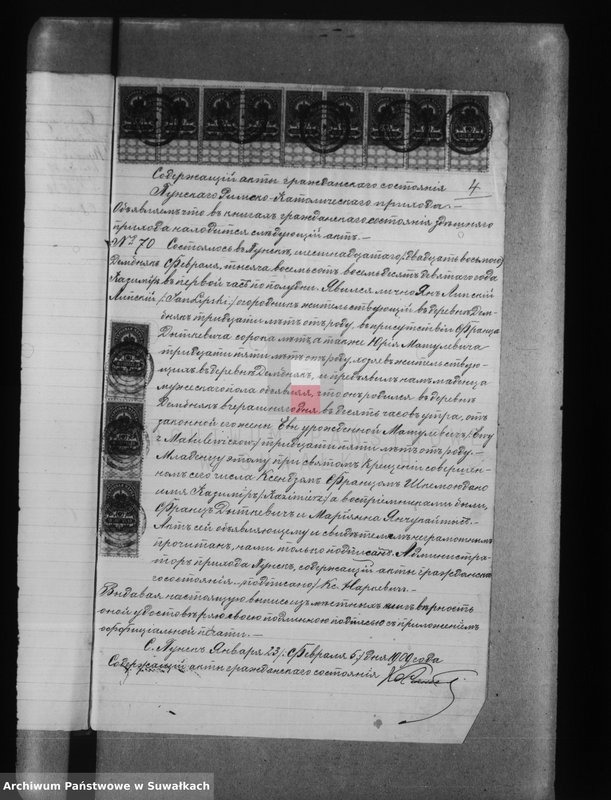 4
Содержащій акты гражданскаго состоянія
Пунскаго Римско-Католическаго прихода.-
Объявляемъ что въ книгахъ гражданскаго состоянія здѣшняго
прихода находится слѣдующій актъ.-
№ 70 Состоялось въ Пунскѣ, шестнадцатаго/двадцать восьмаго/
Дембнякъ Февраля, тысяча восемьсотъ восемьдесятъ девятаго года
Казиміръ въ первой часъ по полудни. Явился лично Янъ Липскій
Липскій /Jan Lipski/ огородникъ жительствующій въ деревнѣ Дем-
бнякъ тридцати лѣтъ отъ роду, въ присутствіи Франца
Дыткевича сорока лѣтъ, а также Юрія Матулевича
тридцати пяти лѣтъ отъ роду, жительствую-
щихъ въ деревнѣ Дембнякъ, и предъявилъ намъ младенца
мужескаго пола объявляя, что онъ родился въ деревнѣ
Дембнякъ вчерашняго дня въ десять часовъ утра, отъ
законной его жены Евы урожденной Матулевичъ /Ewy
z Matulewiczow/ тридцати пяти лѣтъ отъ роду.-
Младенцу этому при святомъ Крещеніи совершен-
номъ сего числа Ксендзомъ Францомъ дано
имя Казиміръ /Kazimierz/ а воспріемниками были,
Францъ Дыткевичъ и Маріянна.-
Актъ сей объявляющему и свидѣтелямъ неграмотнымъ
прочитанъ, нами только подписанъ. Администра-
торъ прихода Пунскъ, содержащій акты гражданска-
го состоянія - подписано/ Кс. Наркевич.-
Выдавая настоящую выпись изъ мѣстныхъ книгъ вѣрность
оной удостовѣряю своею подлинною подписью съ приложеніемъ
оффиціальной печати.-
С. Пунскъ Января 23/Февраля 5/ дня 1909 года
Содержащій акты гражданскаго состоянія
Archiwum Państwowe w Suwałkach